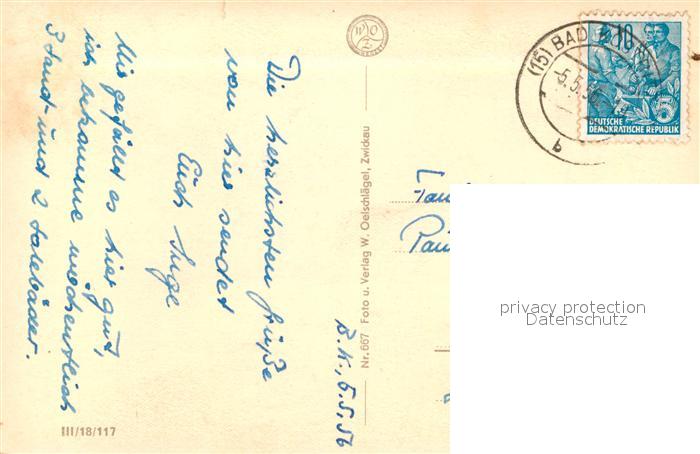 B. K., 5.5.56
Die herzlichsten Grüße
von hier sendet
Euch Inge
Mir gefällt es hier gut,
ich bekomme wöchentlich
3 Sand- und 2 Solebäder.
III/18/117
WO
Z
Nr. 667 Foto u. Verlag W. Oelschlägel, Zwickau
(15) BAD
-5.5.56
b
10
5
DEUTSCHE
DEMOKRATISCHE REPUBLIK
privacy protection
Datenschutz